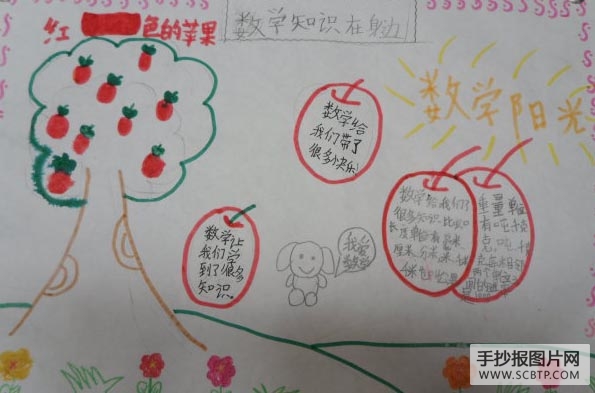 红
色的苹果
数学知识在身边
数学阳光
数学给
我们带了
很多快乐！
数学让
我们学
到了很多
知识。
我爱
数学
数学给我们了
很多知识,比如
长度单位有毫米
厘米、分米、米、千
重量单
有吨、千
克
手抄报图片网
WWW.SCBTP.COM